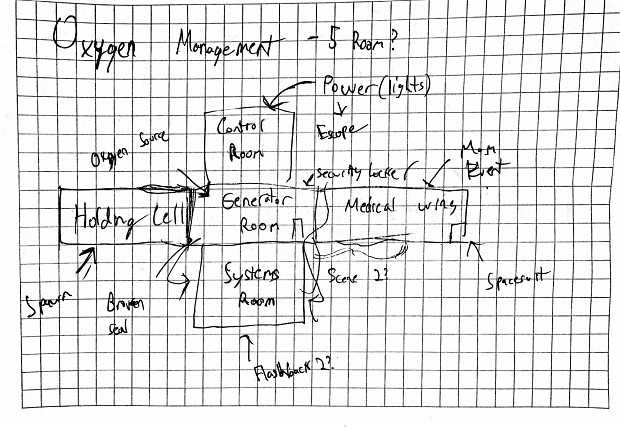 Oxygen Management - 5 Room?
Power (lights)
Escape
Control
Room
Oxygen Source
Security Locker
Main
Event
Holding Cell
Generator
Room
Medical wing
Systems
Room
Scene 2?
Spacesuit
Spawn
Broken
seal
Flashback 2?